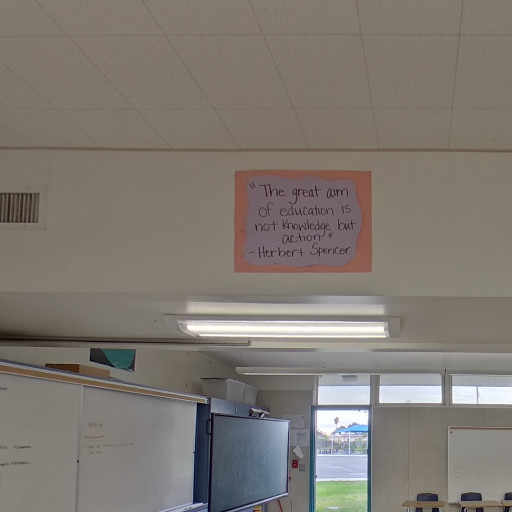 "The great aim
of education is
not knowledge but
action"
- Herbert Spencer